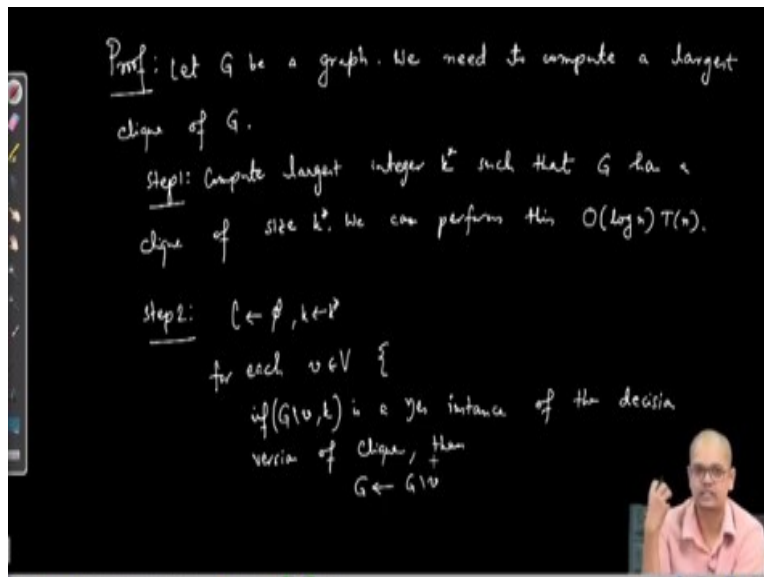 Proof: Let G be a graph. We need to compute a largest
clique of G.
Step1: Compute largest integer k* such that G has a
clique of size k*. We can perform this O(log n) T(n).
Step2: C ← ϕ, k ← k*
for each v ∈ V {
if (G\v, k) is a yes instance of the decision
version of clique, then
G ← G\v